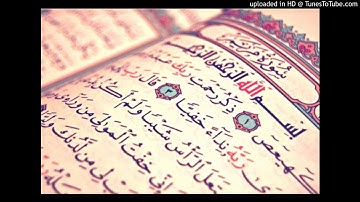 uploaded in HD @ TunesToTube.com
سُورَةُ مَرْيَمَ
بِسْمِ اللَّهِ الرَّحْمَٰنِ الرَّحِيمِ
كهيعص ١ ذِكْرُ رَحْمَتِ رَبِّكَ
رَبَّهُ نِدَاءً خَفِيًّا ٣ قَالَ رَبِّ
الرَّأْسُ شَيْبًا وَلَمْ أَكُن
خِفْتُ الْمَوَالِيَ مِن
لِي مِن لَّدُنكَ